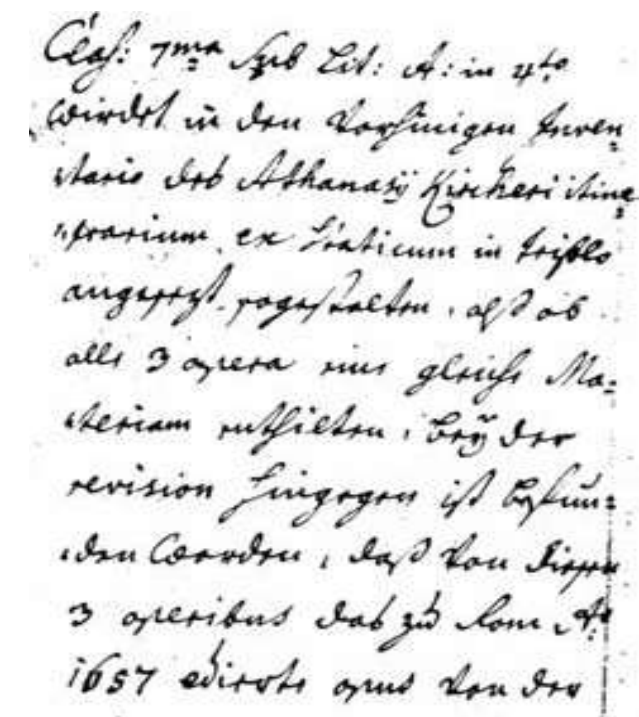 Class: 7ma sub Lit: A: in 4to
wirdet in den Vorhinigen Inven=
tario des Athanasij Kircheri itine=
rarium exstaticum in triplo
angesezt, sogestalten, alß ob
alle 3 opera eine gleiche Ma=
teriam enthielten, beÿ der
revision hingegen ist befun=
den worden, daß von diesen
3 operibus das zu Rom Ao
1657 edierte opus von der